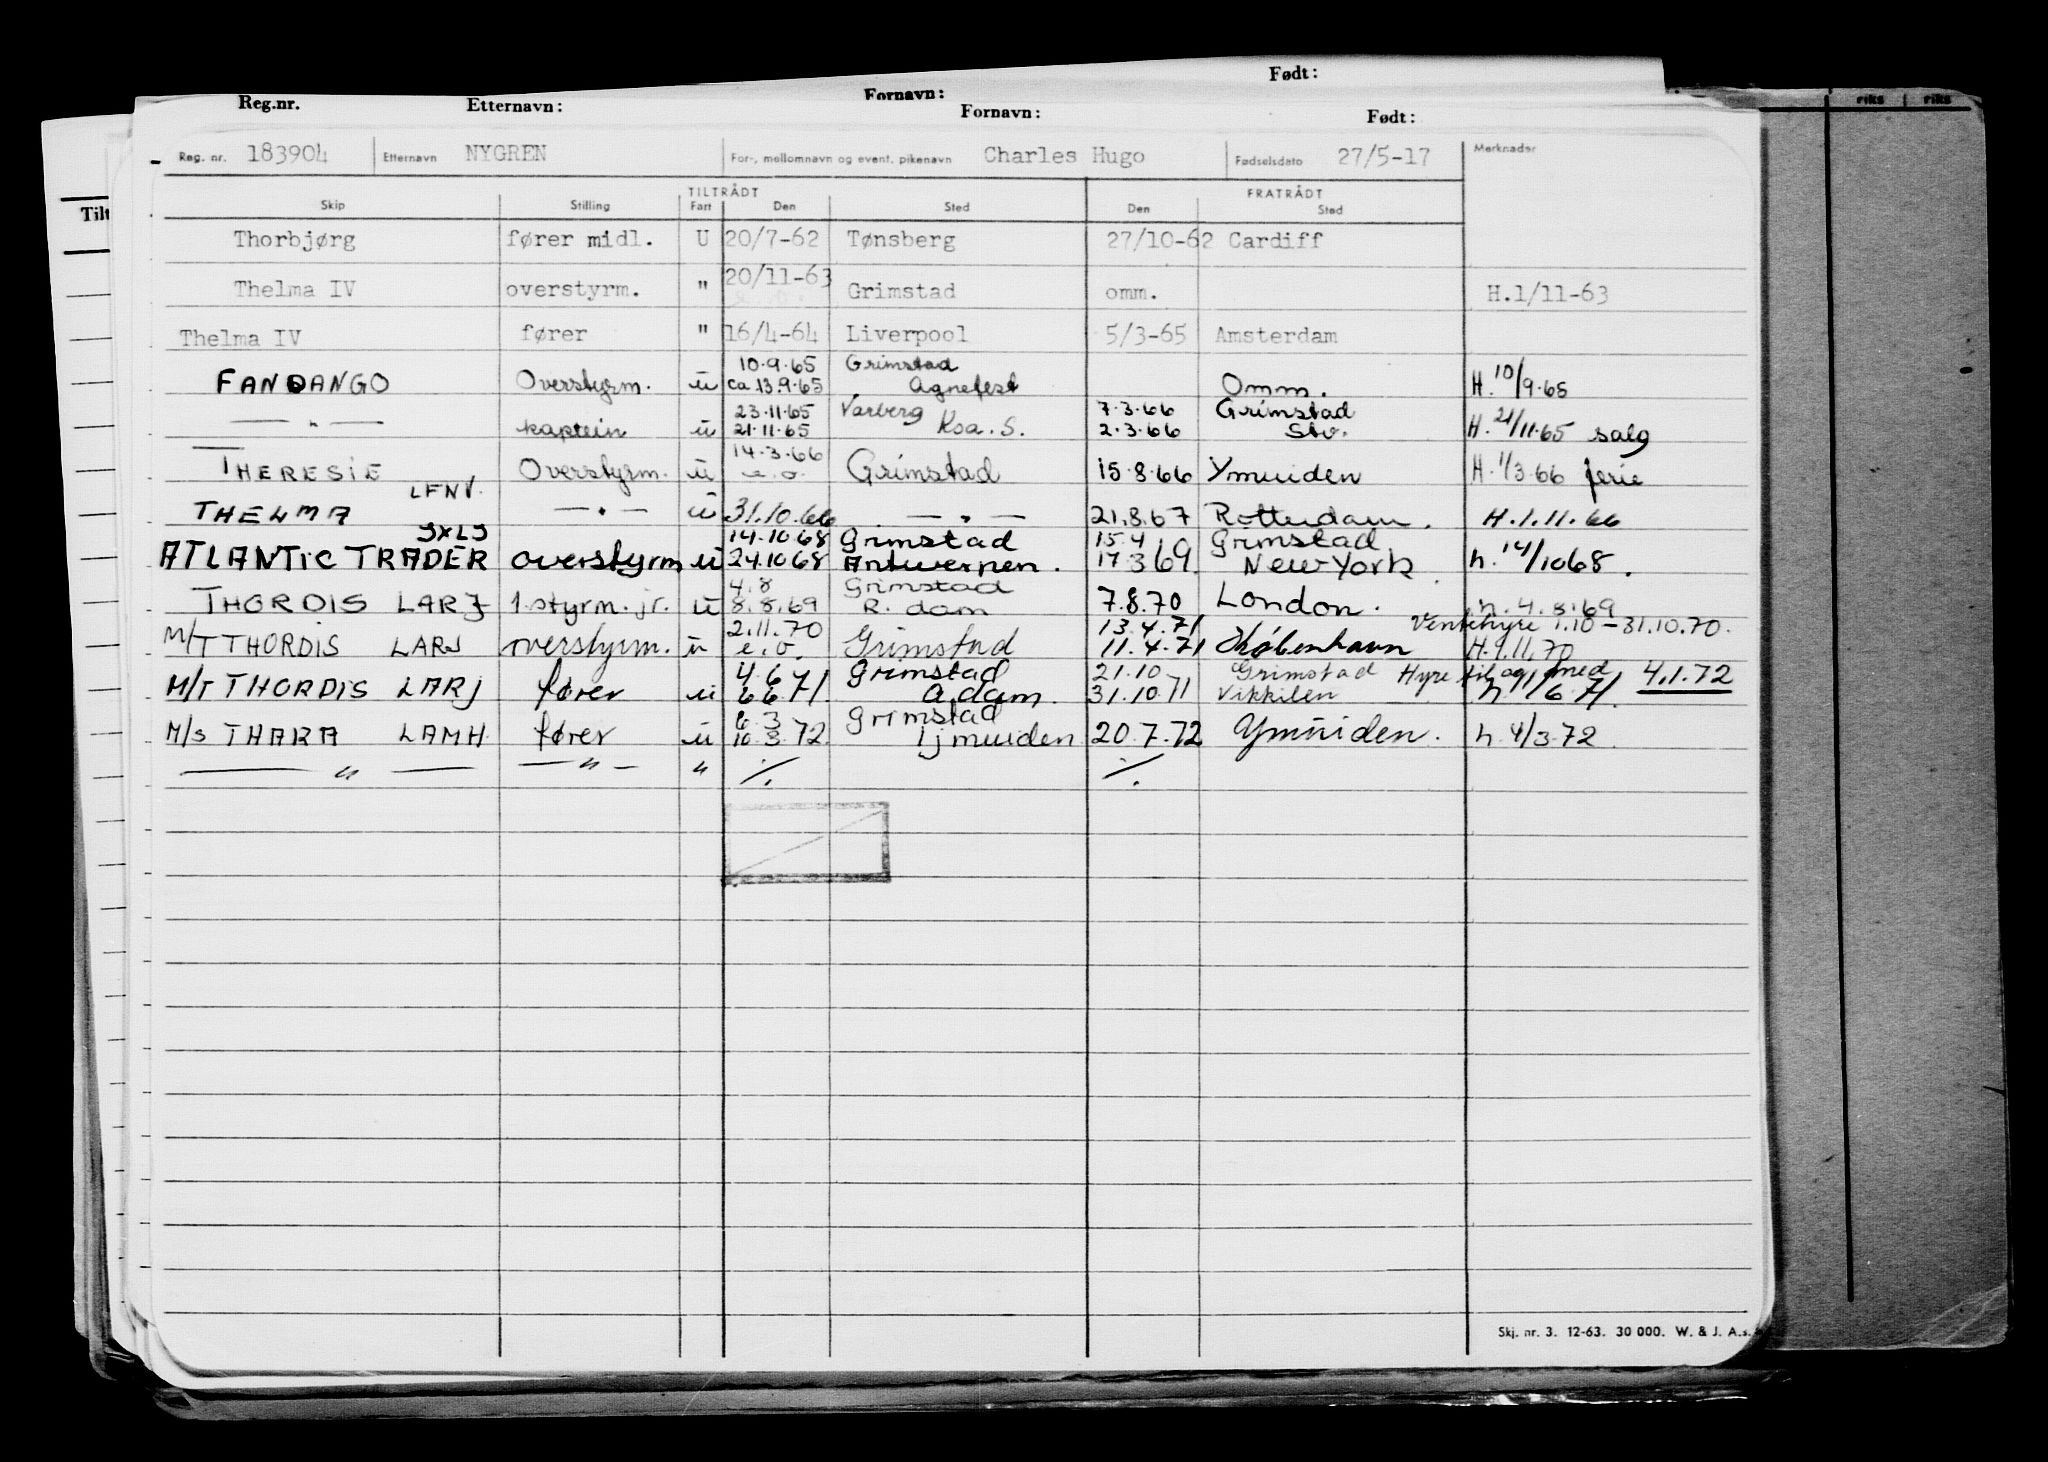 Født:
Reg.nr. Etternavn: Fornavn:
Fornavn: Født:
riks riks
Reg. nr. 183904 Etternavn NYGREN For-, mellomnavn og event. pikenavn Charles Hugo Fødselsdato 27/5-17 Merknader
TILTRÅDT FRATRÅDT
Skip Stilling Fart Den Sted Den Sted
Tilt
Thorbjørg fører midl. U 20/7-62 Tønsberg 27/10-62 Cardiff
Thelma IV overstyrm. " 20/11-63 Grimstad omm. H.1/11-63
Thelma IV fører " 16/4-64 Liverpool 5/3-65 Amsterdam
10.9.65 Grimstad
FANDANGO Overstyrm. u ca 13.9.65 Agnefest Omm. H. 10/9.65
23.11.65 Varberg 7.3.66 Grimstad
— " — kaptein u 21.11.65 Ksa. S. 2.3.66 Stv. H. 21/11.65 salg
14.3.66
THERESIE Overstyrm. u e.o. Grimstad 15.8.66 Ymuiden H. 1/3.66 ferie
LFNV.
THELMA — " — u 31.10.66 — " — 21.8.67 Rotterdam. H.1.11.66
JXLJ 14.10.68 Grimstad 15.4 Grimstad
ATLANTIC TRADER overstyrm u 24.10 68 Antwerpen. 17.3.69. New York h. 14/10 68.
4.8 Grimstad
THORDIS LARJ 1. styrm. jr. u 8.8.69 R. dam 7.8.70 London. h. 4.8.69
2.11.70 13.4.71 Ventehyre 1.10 – 31.10.70.
M/T THORDIS LARJ overstyrm. u e.o. Grimstad 11.4.71 København H.1.11.70
4.6 Grimstad 21.10 Grimstad Hyre til og med 4.1.72
M/T THORDIS LARJ fører u 6.6.71 A.dam. 31.10.71 Vikkilen h. 1/6.71.
6.3 Grimstad
M/S THARA LAMH fører u 10.3.72. Ijmuiden 20.7.72 Ymuiden. h. 4/3.72.
— " — — " — " ./. ./.
Skj. nr. 3. 12-63. 30 000. W. & J. A.s.